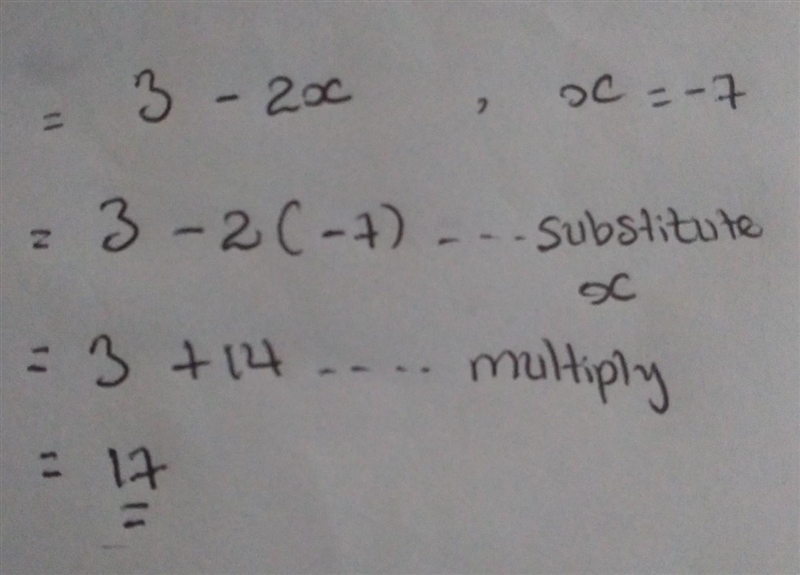 = 3 - 2x , x = -7
= 3 - 2(-7) --- substitute
x
= 3 + 14 ---- multiply
= 17